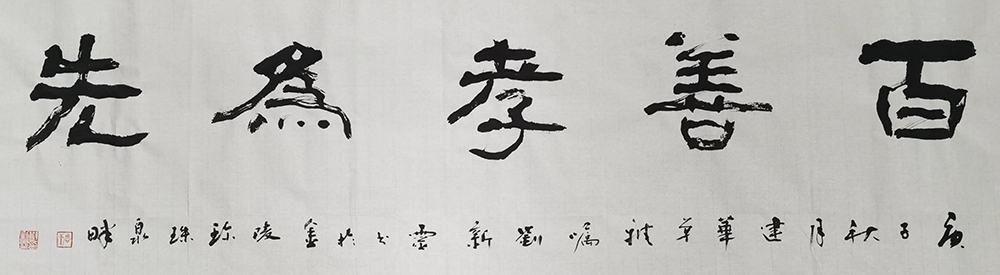 百善孝為先
庚子秋月建華弟雅嘱劉新雲书於金陵珍珠泉畔